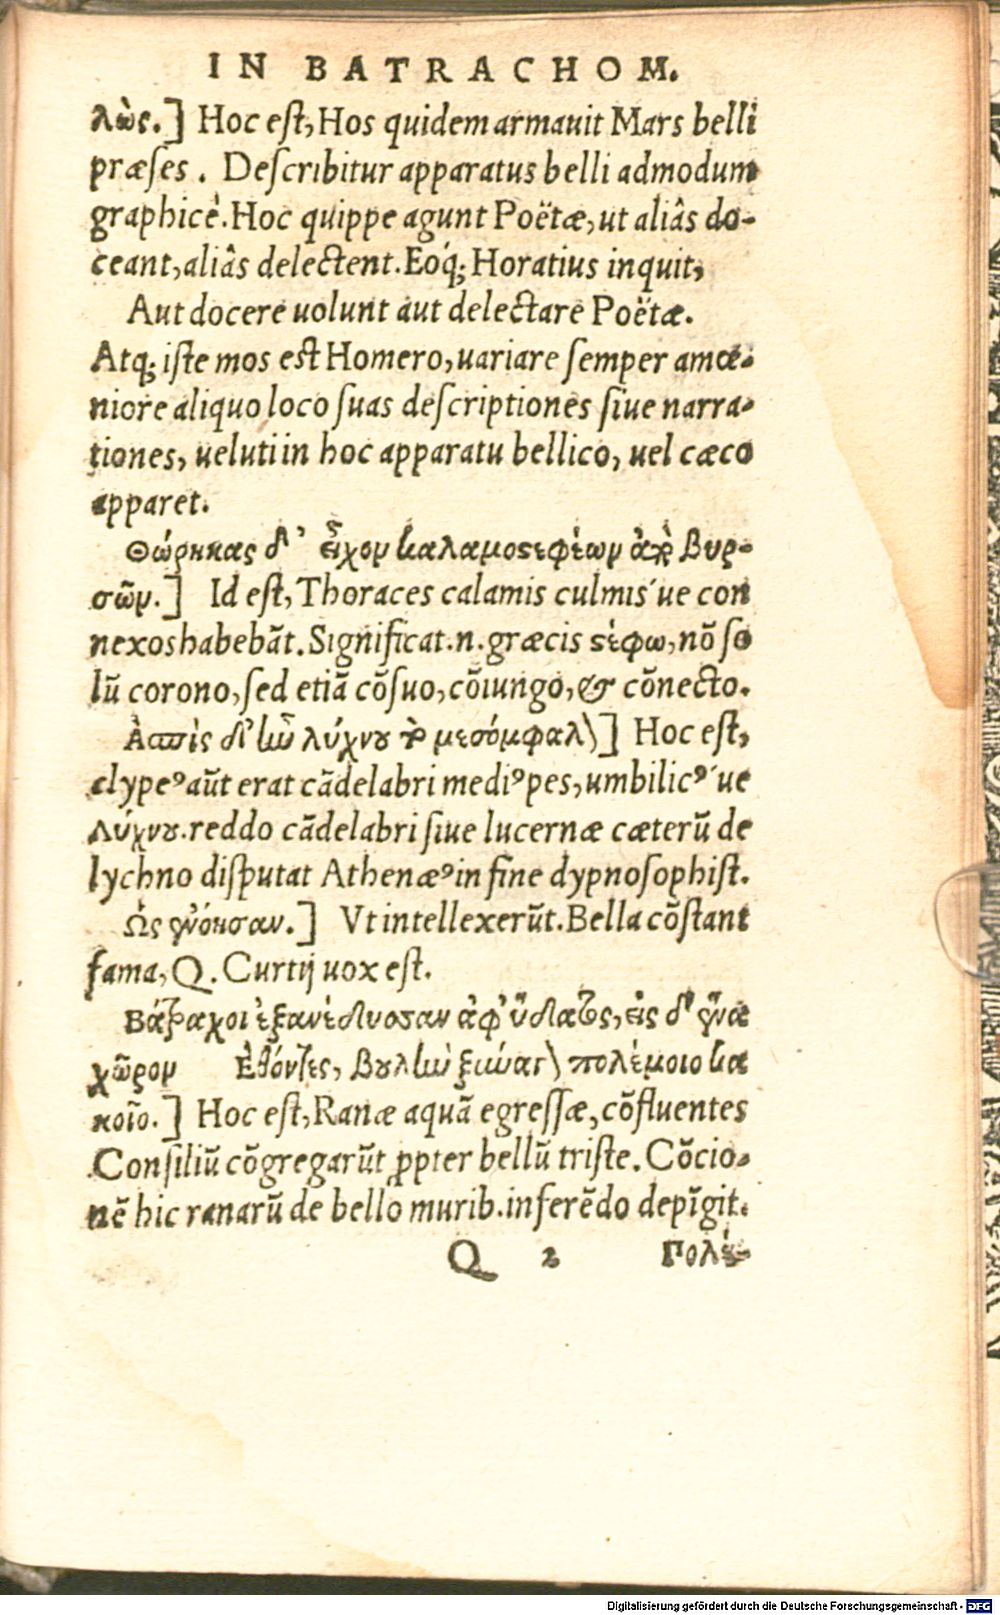 IN BATRACHOM.
λὼς.] Hoc eſt, Hos quidem armauit Mars belli
præſes. Deſcribitur apparatus belli admodum
graphicè. Hoc quippe agunt Poëtæ, ut aliâs do-
ceant, aliâs delectent. Eoq́; Horatius inquit,
Aut docere uolunt aut delectare Poëtæ.
Atq; iſte mos eſt Homero, uariare ſemper amœ-
niore aliquo loco ſuas deſcriptiones ſiue narra-
tiones, ueluti in hoc apparatu bellico, uel cæco
apparet.
Θώρηκας δ' εἶχον καλαμοστεφέων ἀπὸ βυρ-
σῶν.] Id eſt, Thoraces calamis culmis´ue con
nexos habebāt. Significat.n. græcis στέφω, nō ſo
lū corono, ſed etiā cōſuo, cōiungo, & cōnecto.
Ἀσπὶς δ' ἦν λύχνου τὸ μεσόμφαλον] Hoc eſt,
clypeꝰ aūt erat cādelabri mediꝰ pes, umbilicꝰ´ue
λύχνου. reddo cādelabri ſiue lucernæ cæterū de
lychno diſputat Athenæꝰ in fine dypnosophiſt.
Ὡς ἐνόησαν.] Vt intellexerūt. Bella cōſtant
fama, Q. Curtij uox eſt.
Βάτραχοι ἐξανέδυσαν ἀφ' ὕδατος, εἰς δ' ἕνα
χῶρον Ἐλθόντες, βουλὴν ξύναγον πολέμοιο κα
κοῖο.] Hoc eſt, Ranæ aquā egreſſæ, cōfluentes
Conſiliū cōgregarūt ꝓpter bellū triſte. Cōcio-
nē hic ranarū de bello murib. inferēdo depīgit.
Q 2 Πολέ-
Digitalisierung gefördert durch die Deutsche Forschungsgemeinschaft - DFG